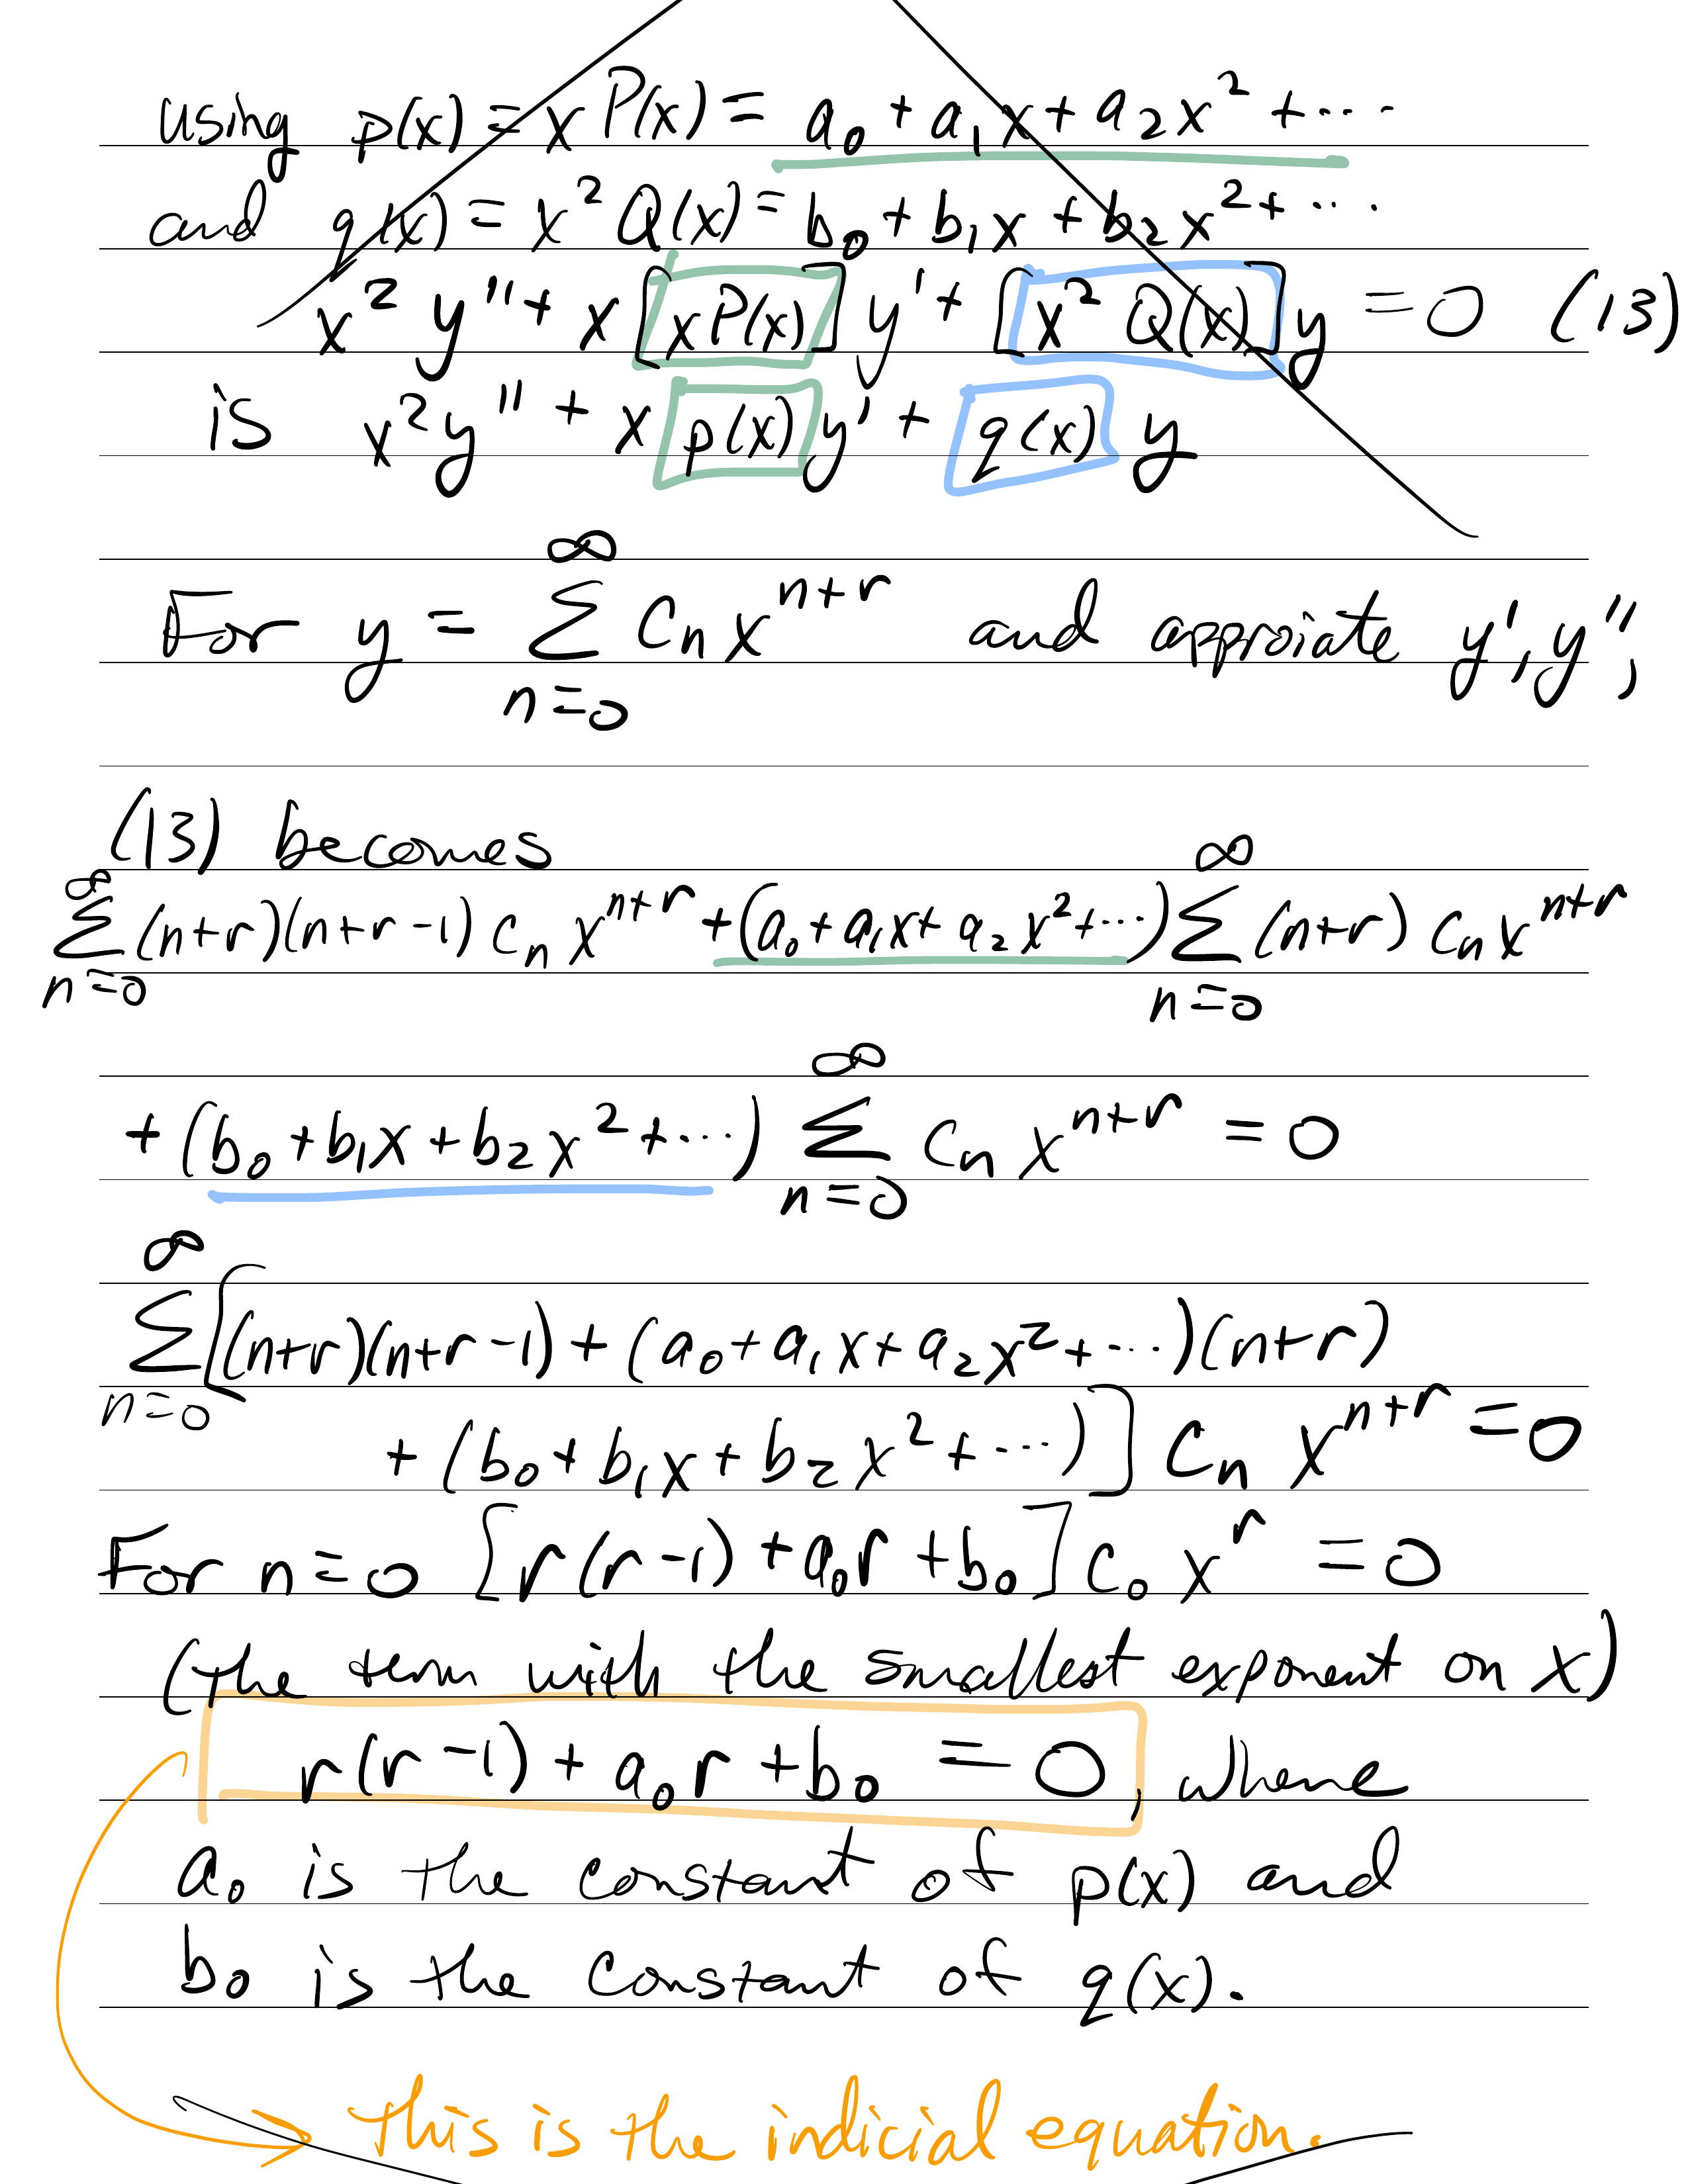 using p(x) = x P(x) = a₀ + a₁x + a₂x² + ⋯
and q(x) = x² Q(x) = b₀ + b₁x + b₂x² + ⋯
x² y'' + x [x P(x)] y' + [x² Q(x)] y = 0 (13)
is x² y'' + x p(x) y' + q(x) y
For y = ∑_{n=0}^{∞} cₙ x^{n+r} and approiate y', y'',
(13) becomes
∑_{n=0}^{∞} (n+r)(n+r-1) cₙ x^{n+r} + (a₀ + a₁x + a₂x² + ⋯) ∑_{n=0}^{∞} (n+r) cₙ x^{n+r}
+ (b₀ + b₁x + b₂x² + ⋯) ∑_{n=0}^{∞} cₙ x^{n+r} = 0
∑_{n=0}^{∞} [(n+r)(n+r-1) + (a₀ + a₁x + a₂x² + ⋯)(n+r)
+ (b₀ + b₁x + b₂x² + ⋯)] cₙ x^{n+r} = 0
For n=0 [r(r-1) + a₀r + b₀] c₀ x^r = 0
(the term with the smallest exponent on x)
r(r-1) + a₀r + b₀ = 0, where
a₀ is the constant of p(x) and
b₀ is the constant of q(x).
→ this is the indicial equation.